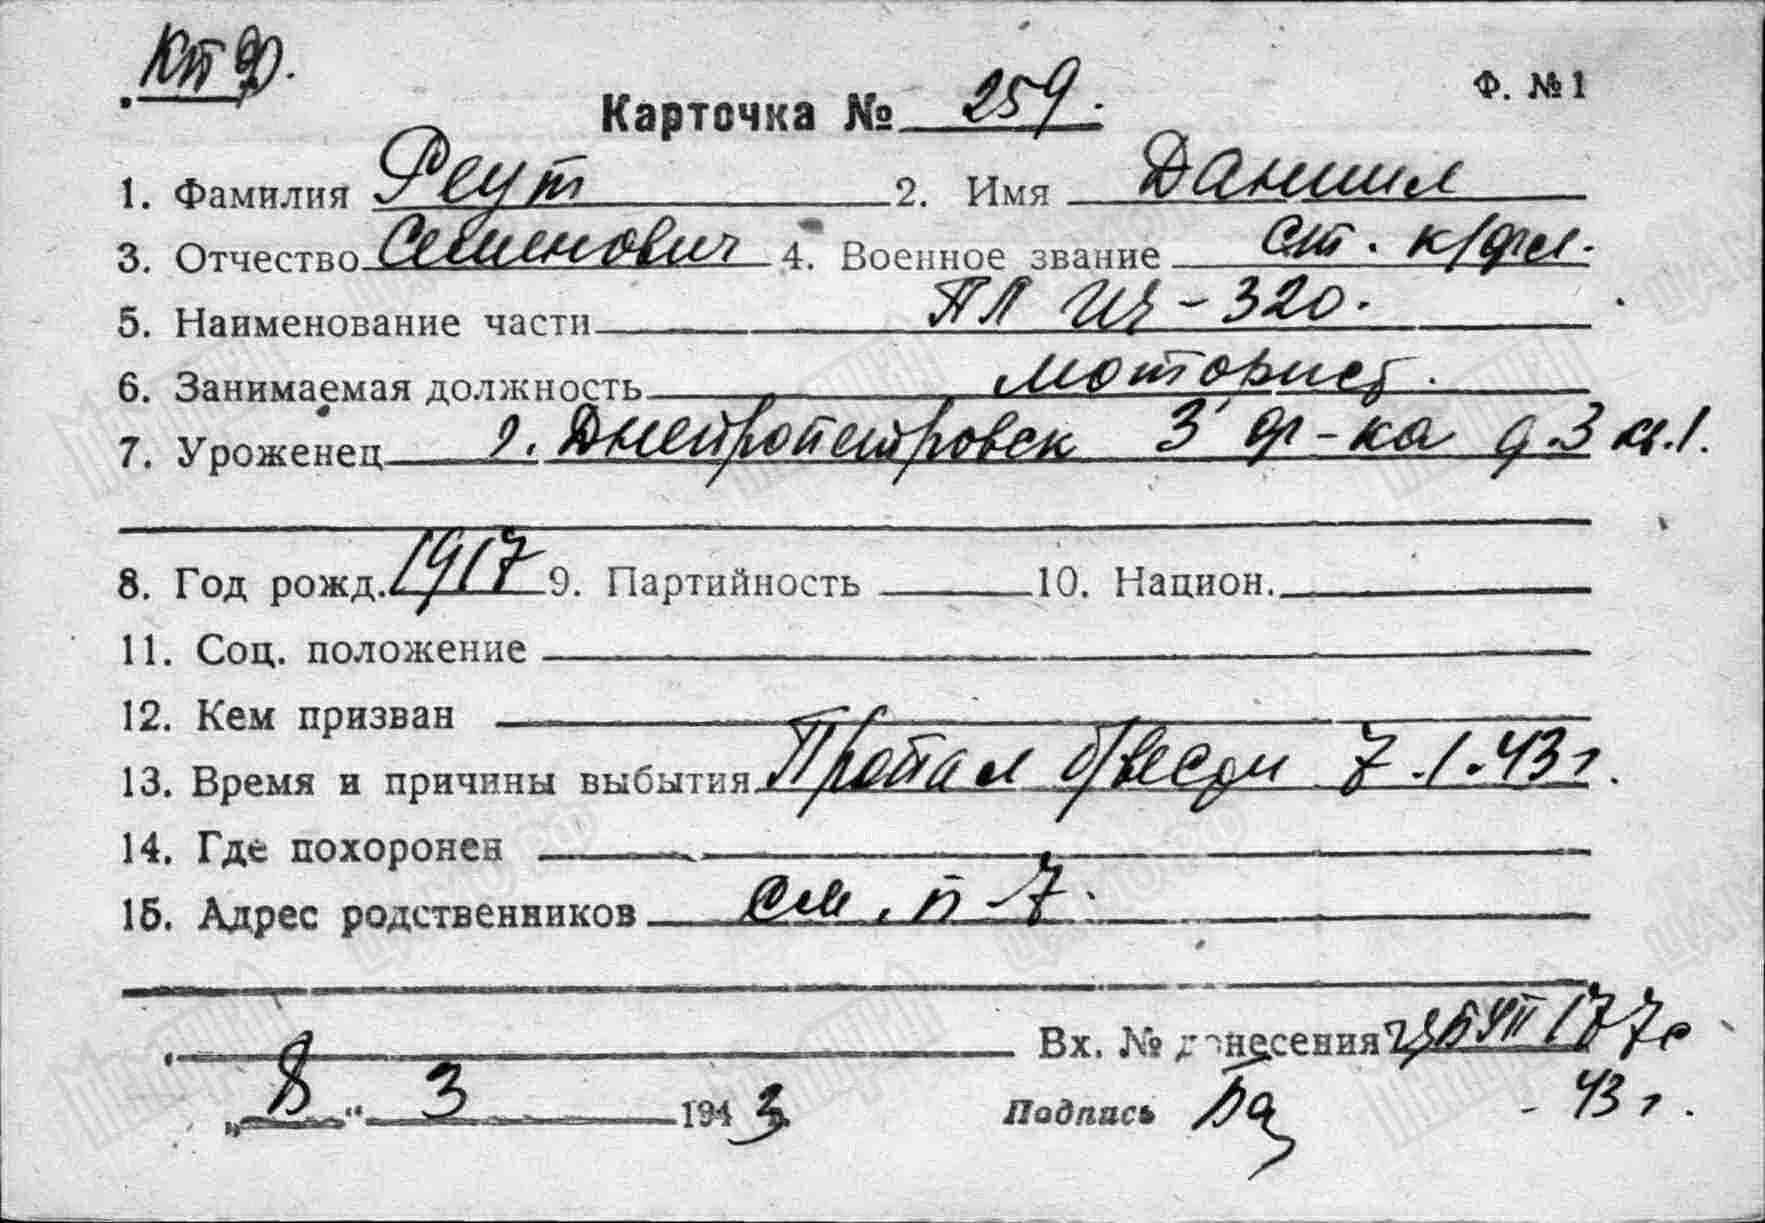 КТФ.
Ф. №1
Карточка № 259.
1. Фамилия Реут 2. Имя Даниил
3. Отчество Семенович 4. Военное звание ст. к/фл.
5. Наименование части ПЛ Щ-320.
6. Занимаемая должность моторист.
7. Уроженец г. Днепропетровск 3 ф-ка д.3 кв.1.
8. Год рожд. 1917 9. Партийность 10. Национ.
11. Соц. положение
12. Кем призван
13. Время и причины выбытия Пропал б/вести 7.1.43 г.
14. Где похоронен
15. Адрес родственников см. п-7.
Вх. № донесения 177с
„8“ 3 1943 Подпись - 43 г.